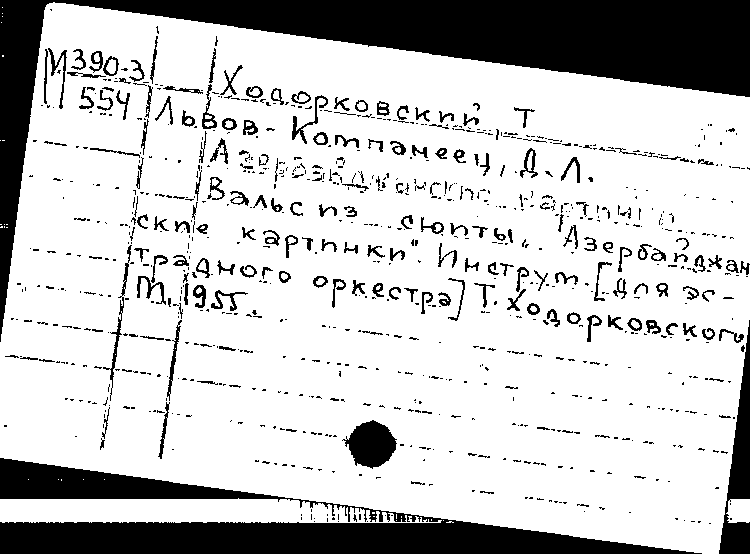 М390-3
554
Ходорковский Т
Львов-Компанеец, Д.Л.
Азербайджанские картинки
Вальс из сюиты „Азербайджан
ские картинки". Инструм. [для эс-
традного оркестра] Т. Ходорковского.
М. 1955.